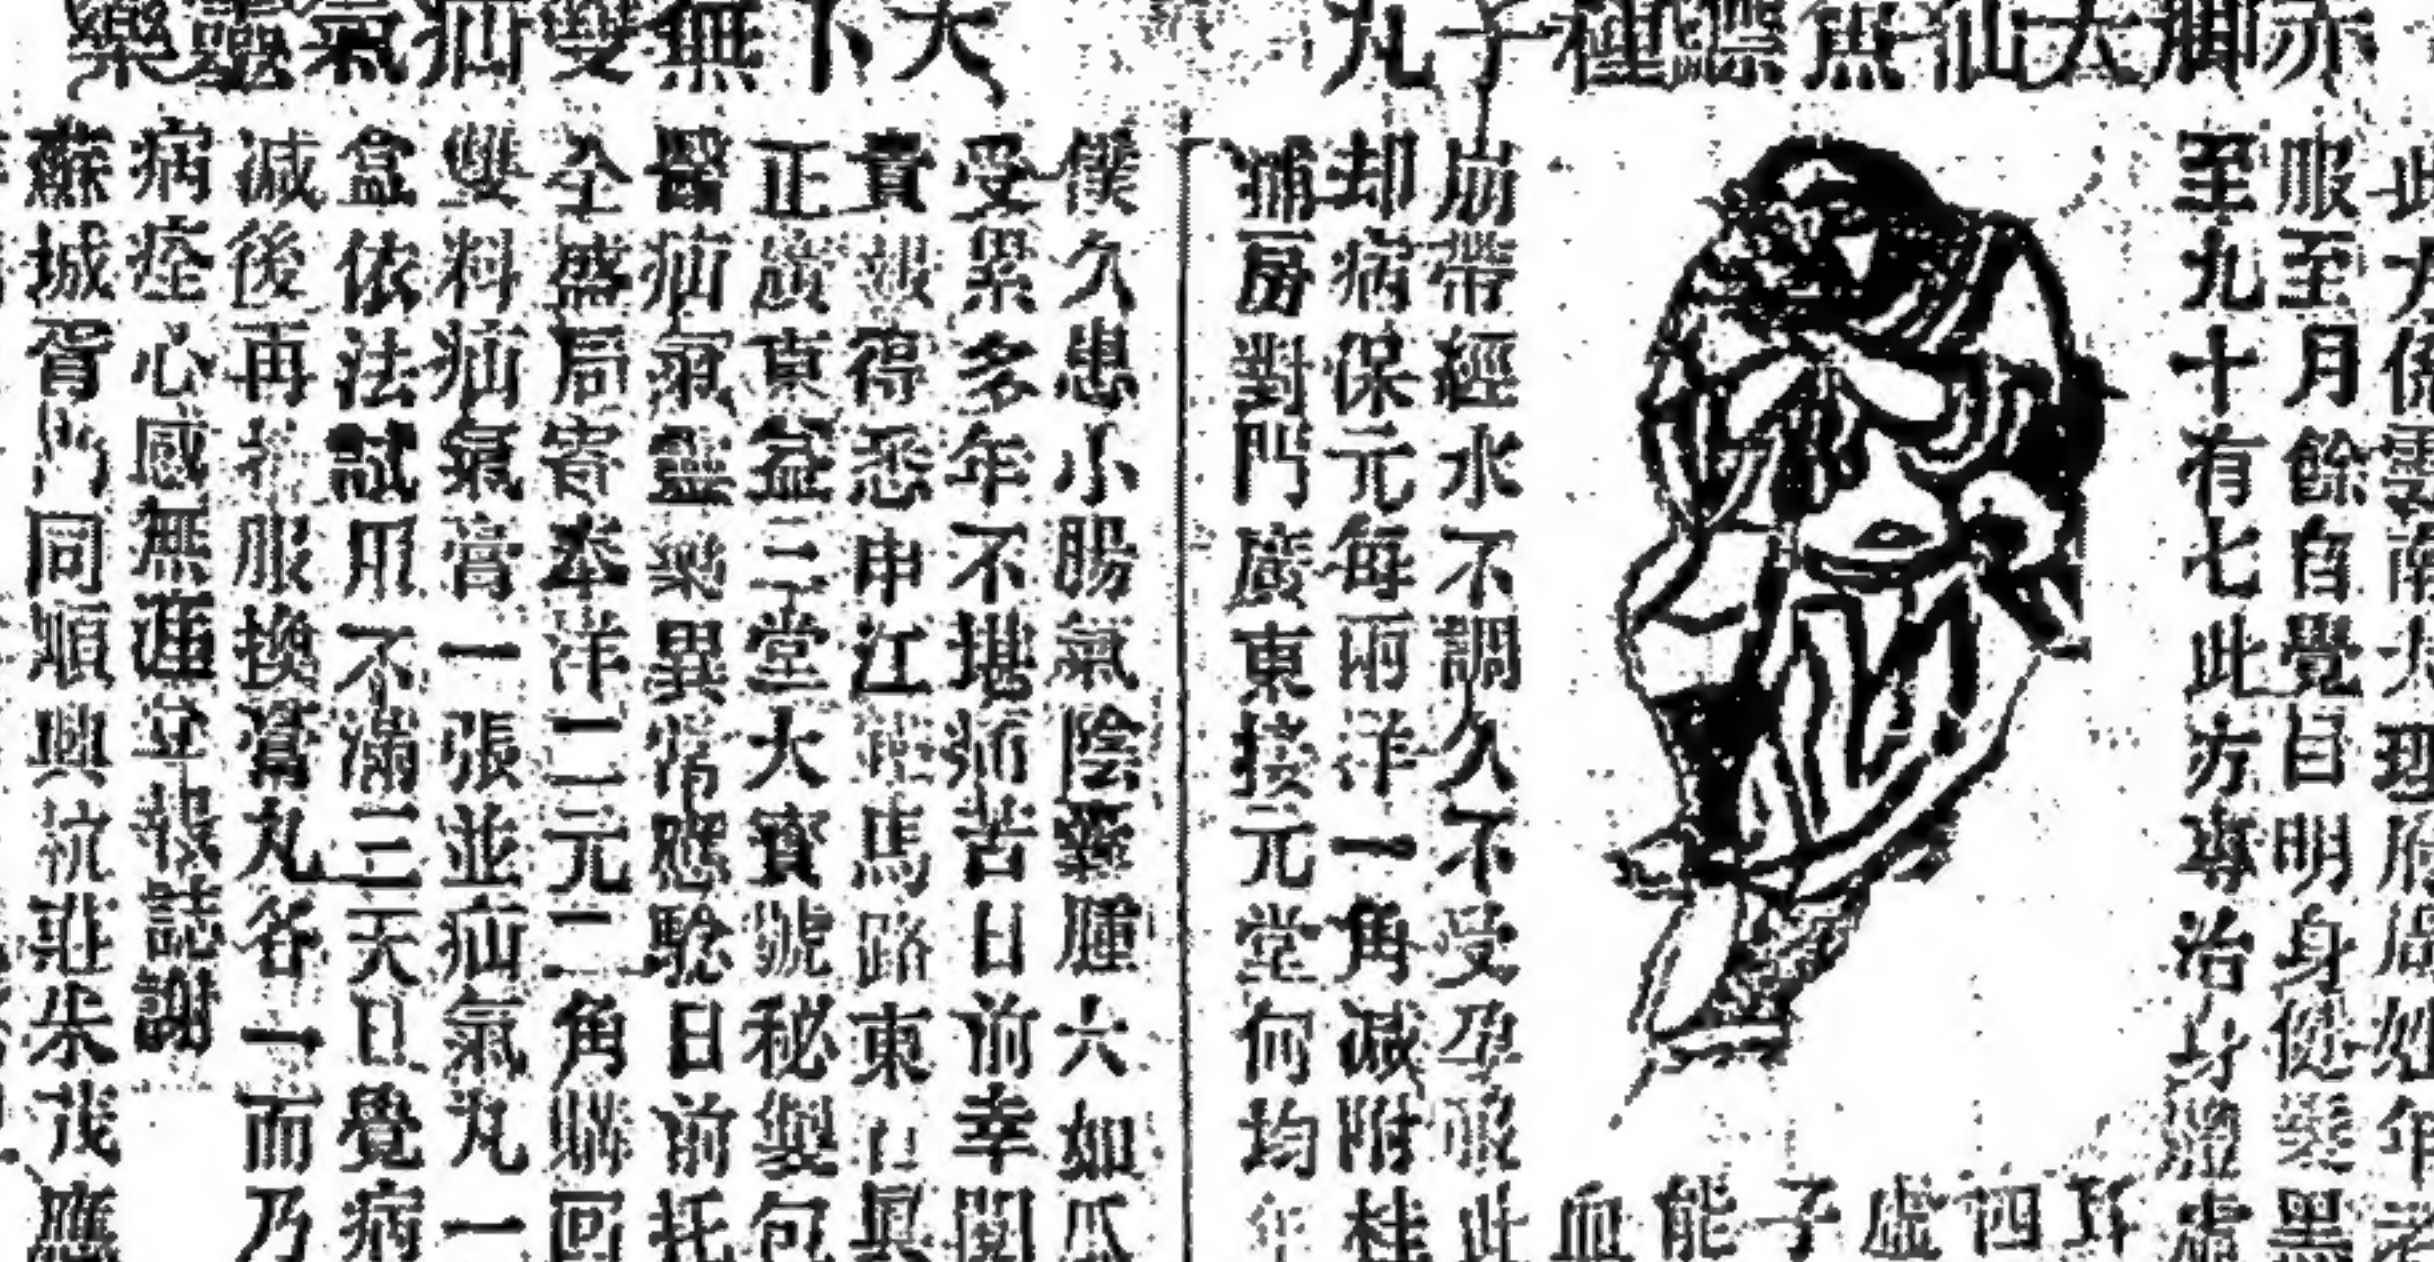 赤脚大仙魚鰾種子丸
服至月餘自覺目明身健髮黑
至九十有七此方專治身體虛
耳四虛子能血
崩帶經水不調久不受孕服此
却病保元每兩洋一角減附桂
浦房對門廣東接元堂何均年
天下無雙疝氣靈藥
僕久患小腸氣陰囊腫大如瓜
受累多年不堪痛苦日前幸閱
貴報得悉申江馬路東口眞
正廣東益三堂大寶號秘製包
醫疝氣靈藥異常應驗日前托
全盛局寄奉洋二元二角購回
雙料疝氣膏一張並疝氣丸一
盒依法試用不滿三天日覺病
減後再服換膏丸各一而乃
病痊心感無涯立報誌謝
蘇城胥門同順興杭莊朱茂應